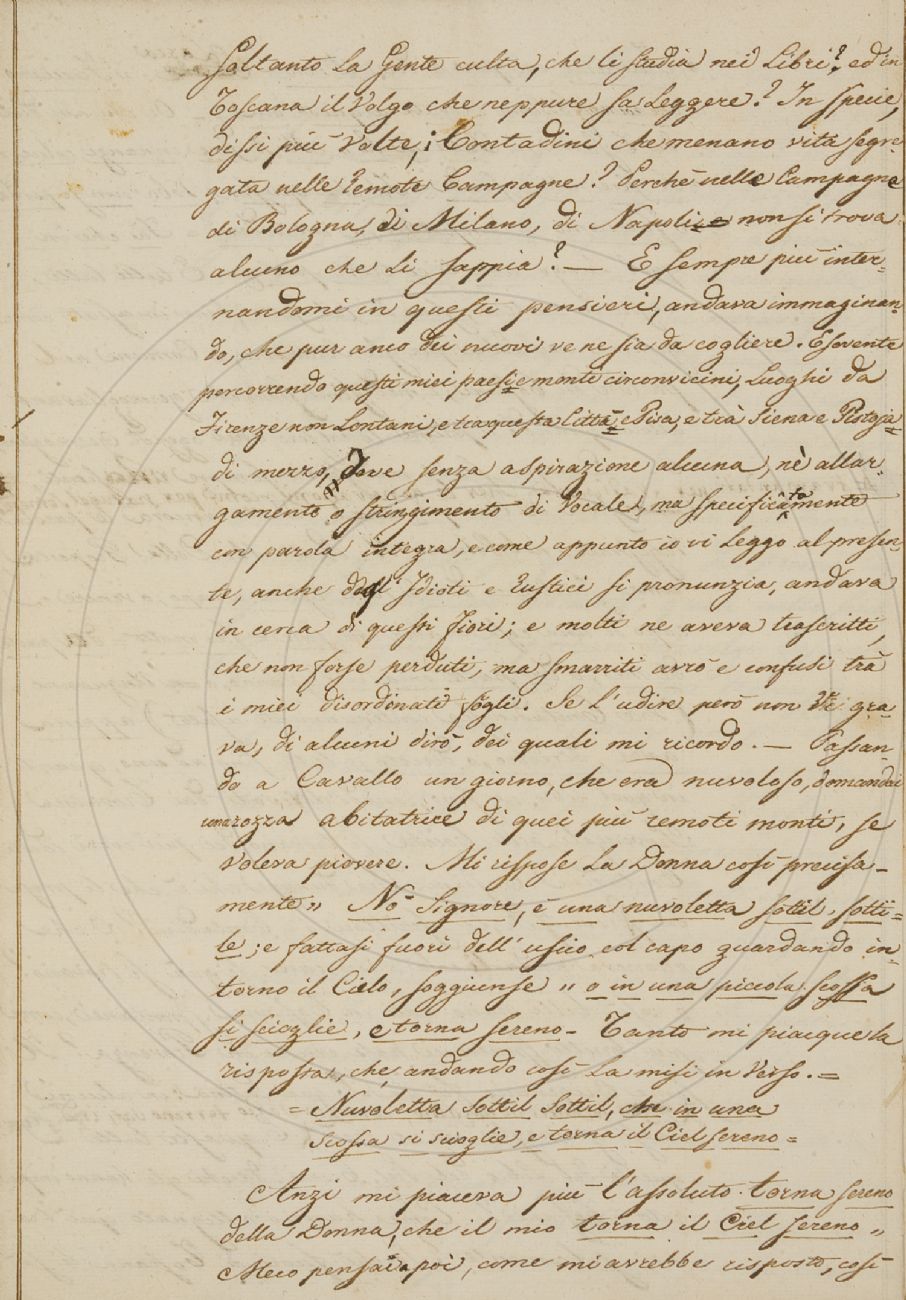 Soltanto la Gente culta, che li studia nei Libri?, ed in
Toscana il Volgo che neppure sa leggere? In specie,
dissi più Volte, i Contadini che menano vita segre-
gata nelle remote Campagne? Perchè nelle Campagne
di Bologna, di Milano, di Napoli non si trova
alcuno che li sappia? — E sempre più inter-
nandomi in questi pensieri, andava immaginan-
do, che pur anco dei nuovi ve ne sia da cogliere. E sovente
percorrendo questi miei paesi e monti circonvicini, Luoghi da
Firenze non Lontani, e tra questa Città e Pisa, e trà Siena e Pistoja
di mezzo, Dove senza aspirazione alcuna, nè allar-
gamento o stringimento di Vocale, ma specificatamente
con parola integra, e come appunto io vi Leggo al presen-
te, anche dagl' Idioti e rustici si pronunzia, andava
in cerca di questi fiori; e molti ne aveva trascritti,
che non forse perduti, ma smarriti avrò e confusi trà
i miei disordinati fogli. Se l'udire però non Vi gra-
va, di alcuni dirò, dei quali mi ricordo. — Passan-
do a Cavallo un giorno, che era nuvoloso, domandai
una rozza abitatrice di quei più remoti monti, se
voleva piovere. Mi rispose la Donna così precisa-
mente „ Nò Signore, è una nuvoletta sottil, sotti=
le; e fattasi fuori dell' uscio col capo guardando in-
torno il Cielo, soggiunse „ o in una piccola scossa
si scioglie, e torna sereno - Tanto mi piacque la
risposta, che andando così la misi in Verso. =
= Nuvoletta sottil sottil, che in una
scossa si scioglie, e torna il Ciel sereno =
Anzi mi piaceva più l'assoluto torna sereno
della Donna, che il mio torna il Ciel sereno „
Meco pensai poi, come mi avrebbe risposto, così